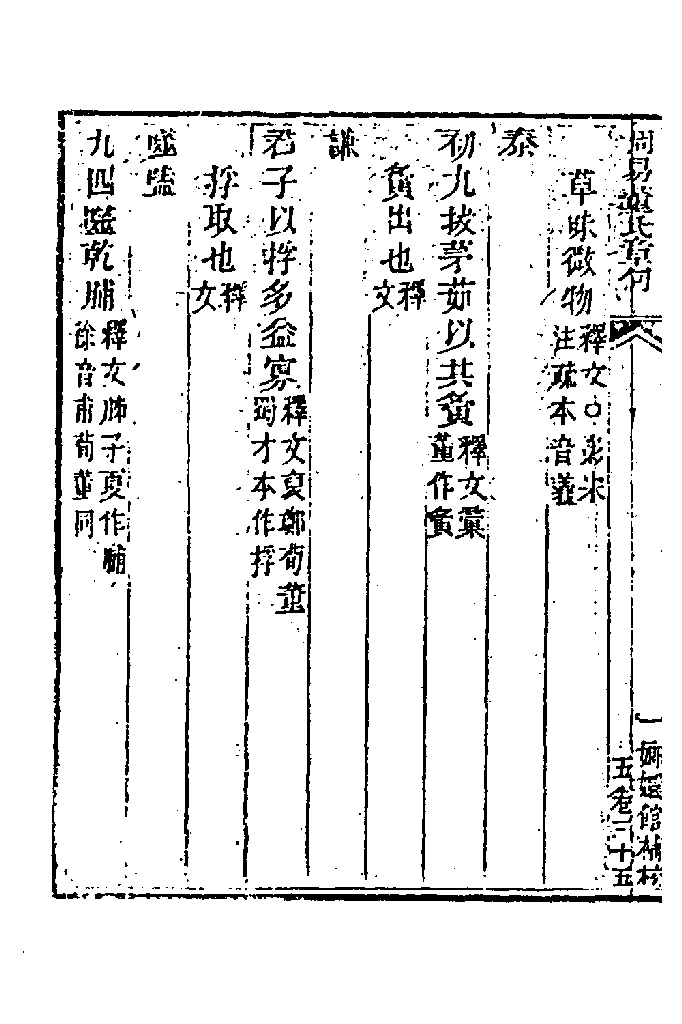 周易董氏章句
草昧微物釋文○彖宋注疏本音義
泰
初九拔茅茹以其䕳釋文彙董作䕳
䕳出也釋文
謙
君子以捊多益寡釋文裒鄭荀董蜀才本作捊
捊取也釋文
噬嗑
九四噬乾脯釋文胏子夏作脯徐音甫荀董同
一
嫏嬛館補校
五卷二十五